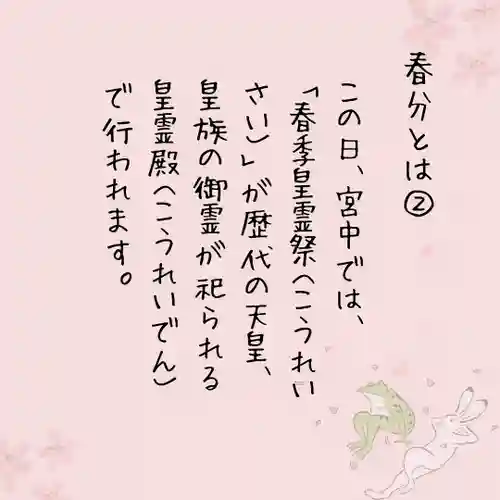 春分とは②
この日、宮中では、
「春季皇霊祭(こうれい
さい)」が歴代の天皇、
皇族の御霊が祀られる
皇霊殿(こうれいでん)
で行われます。